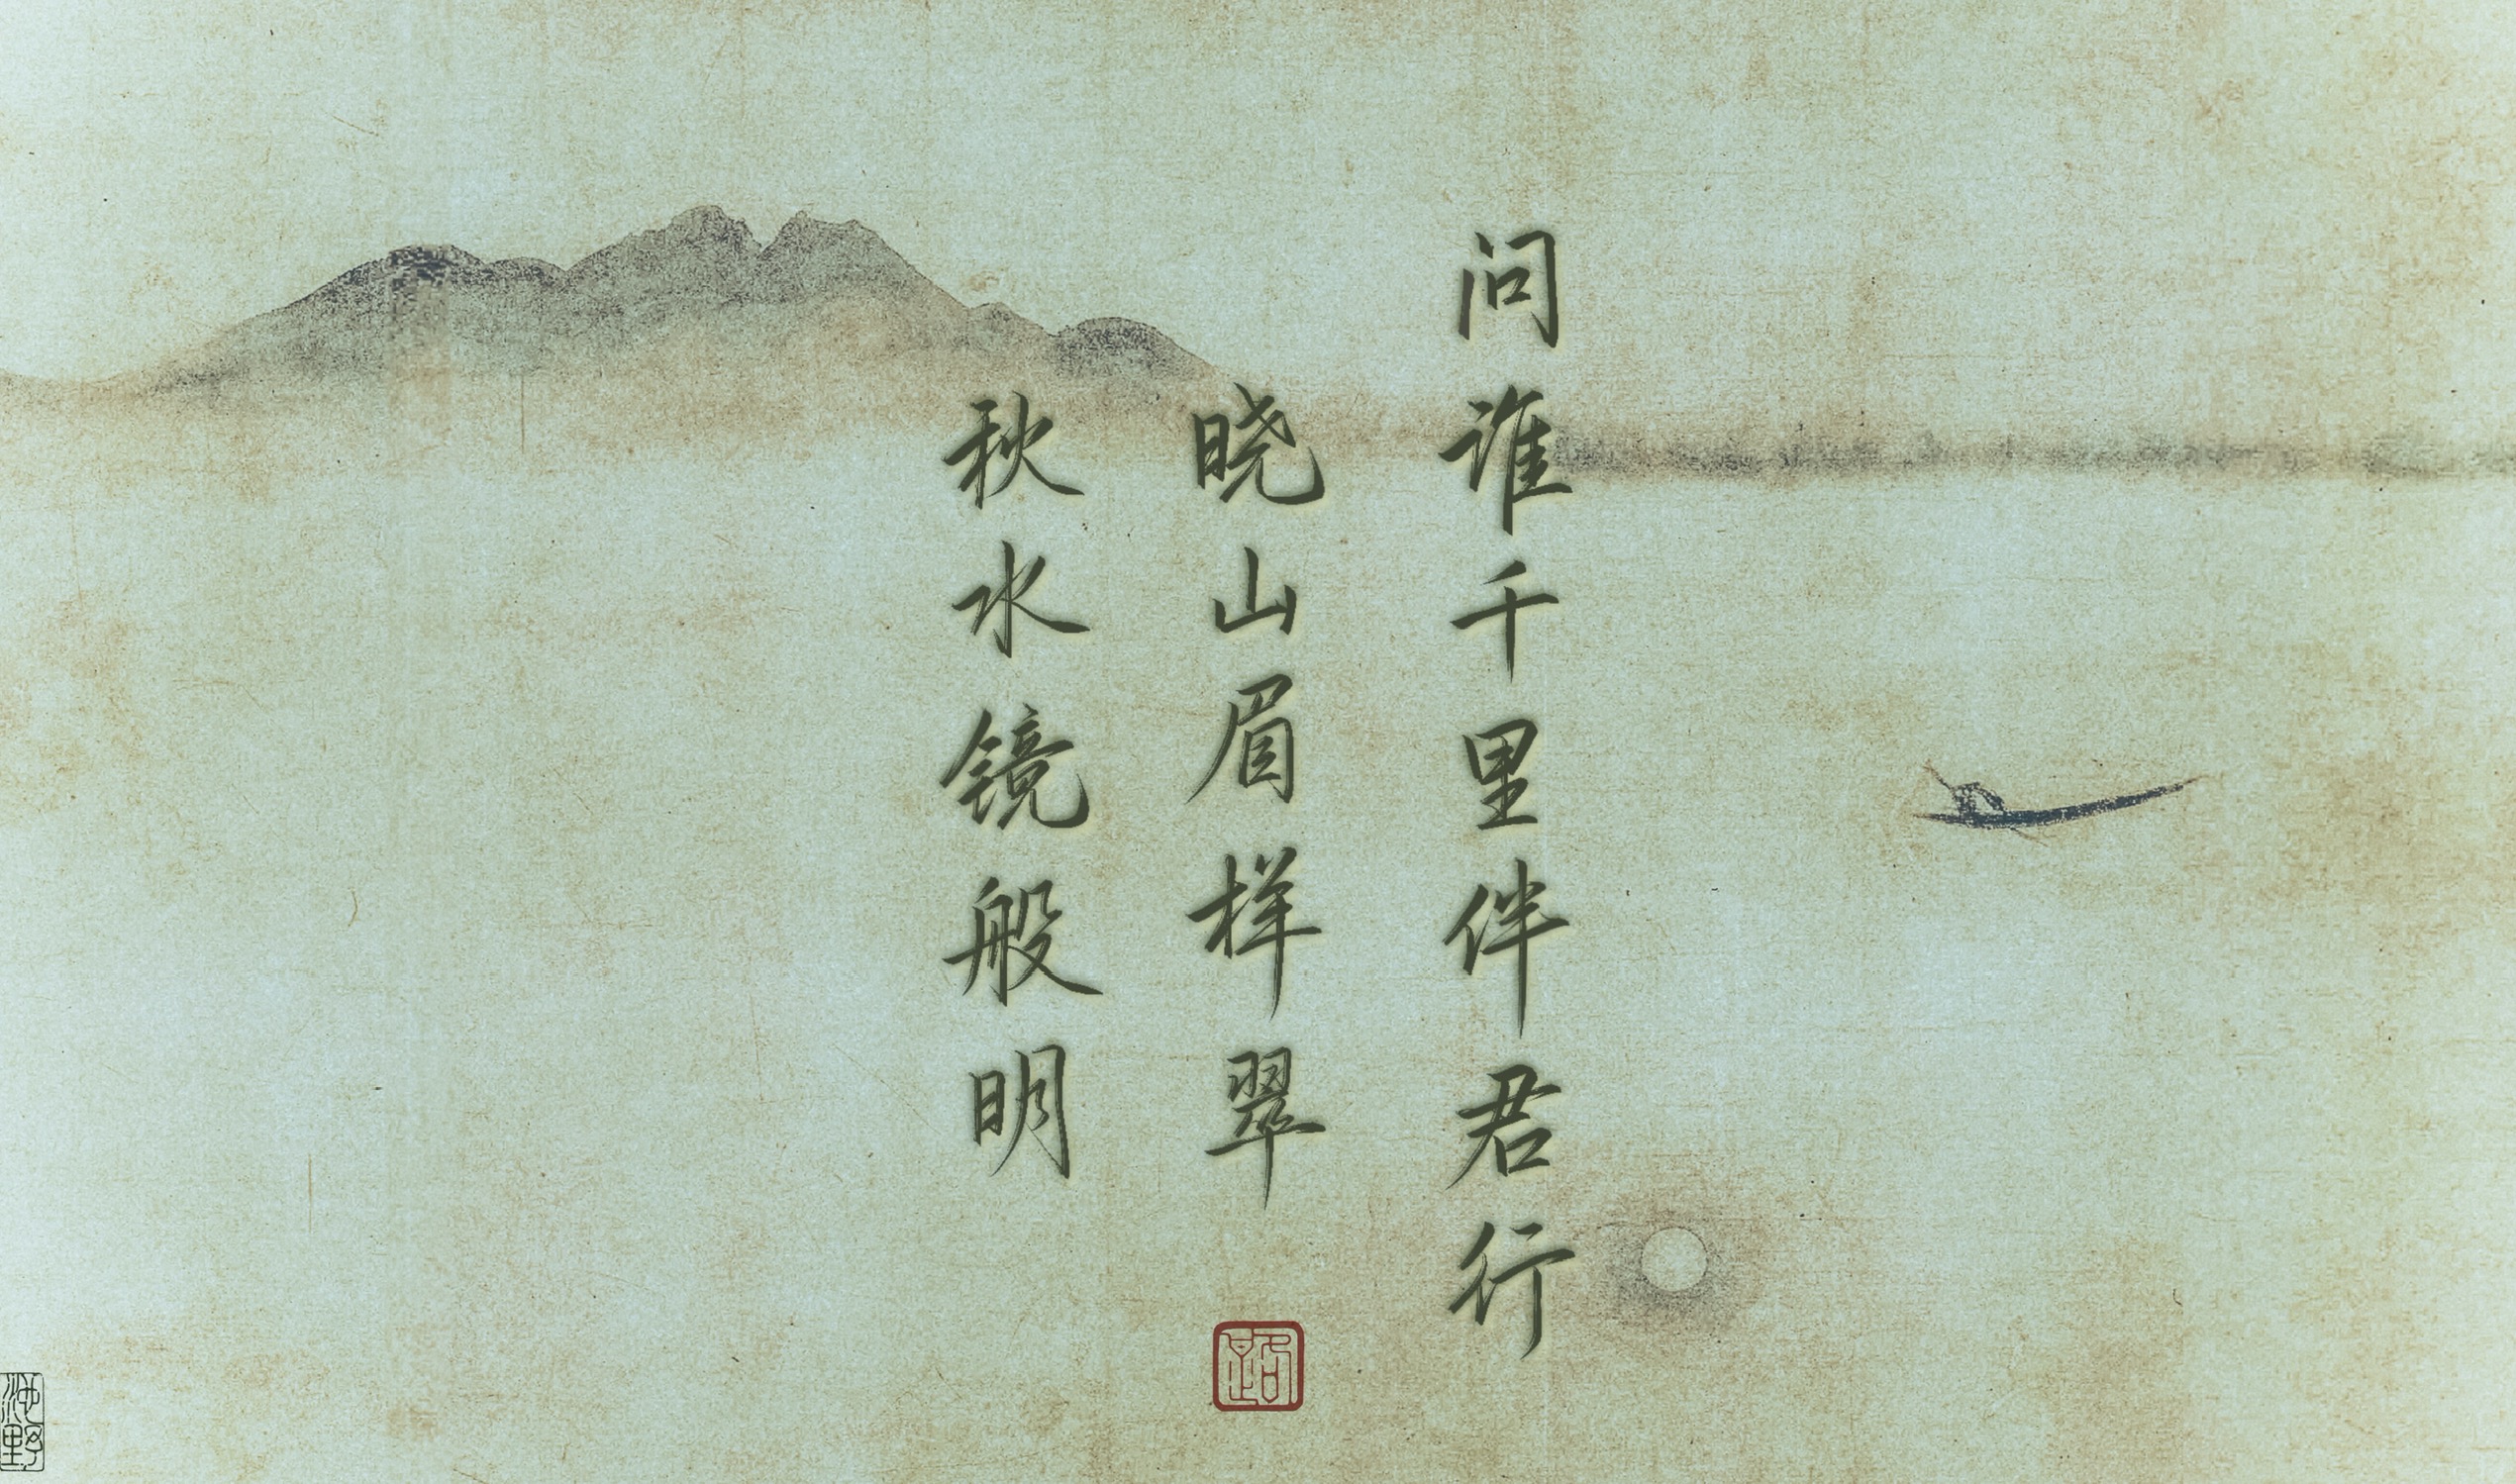 问谁千里伴君行
晓山眉样翠
秋水镜般明